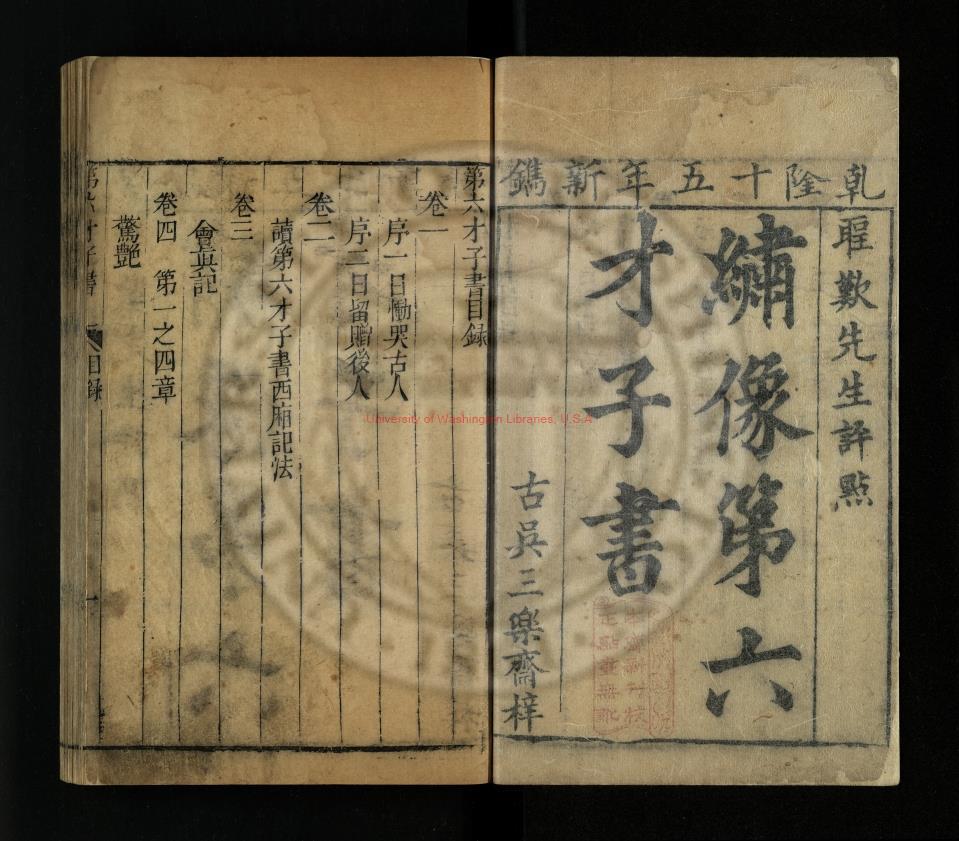 乾隆十五年新鐫
聖歎先生評點
繡像第六
才子書
古吳三樂齋梓
第六才子書目録
卷一
序一曰慟哭古人
序二曰留贈後人
卷二
讀第六才子書西廂記法
卷三
會真記
卷四 第一之四章
驚艷
第六才子書 目録 一
University of Washington Libraries, U.S.A